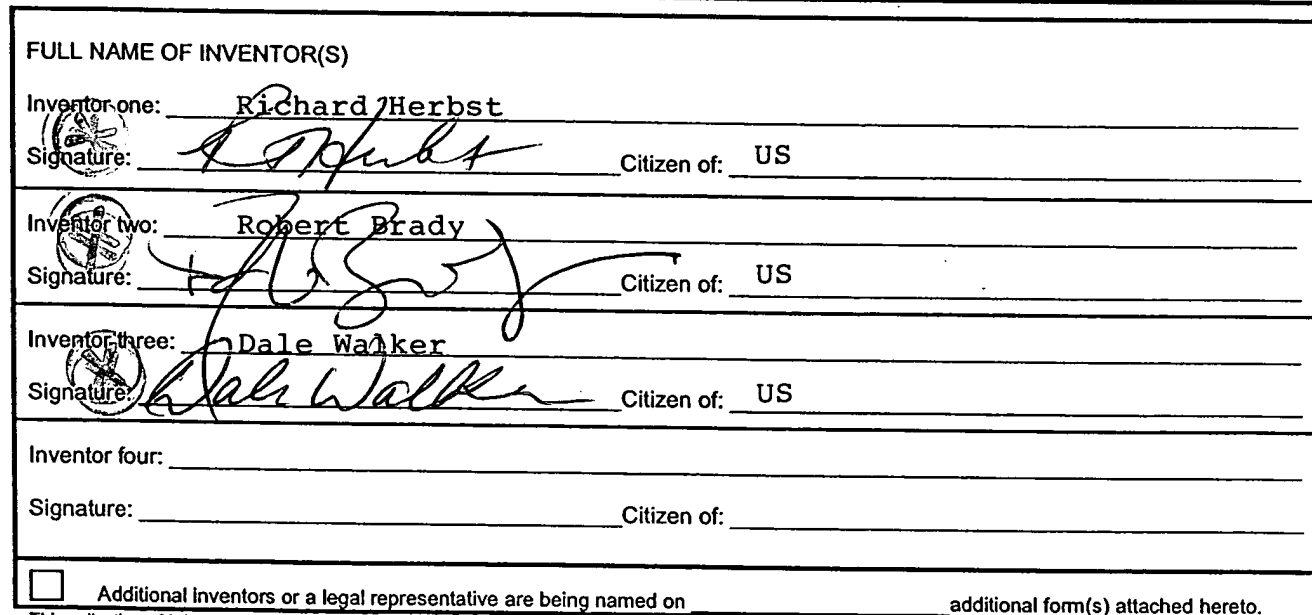 FULL NAME OF INVENTOR(S)
Inventor one: Richard Herbst
Signature: Citizen of: US
Inventor two: Robert Brady
Signature: Citizen of: US
Inventor three: Dale Walker
Signature: Dale Walker Citizen of: US
Inventor four:
Signature: Citizen of:
Additional inventors or a legal representative are being named on additional form(s) attached hereto.